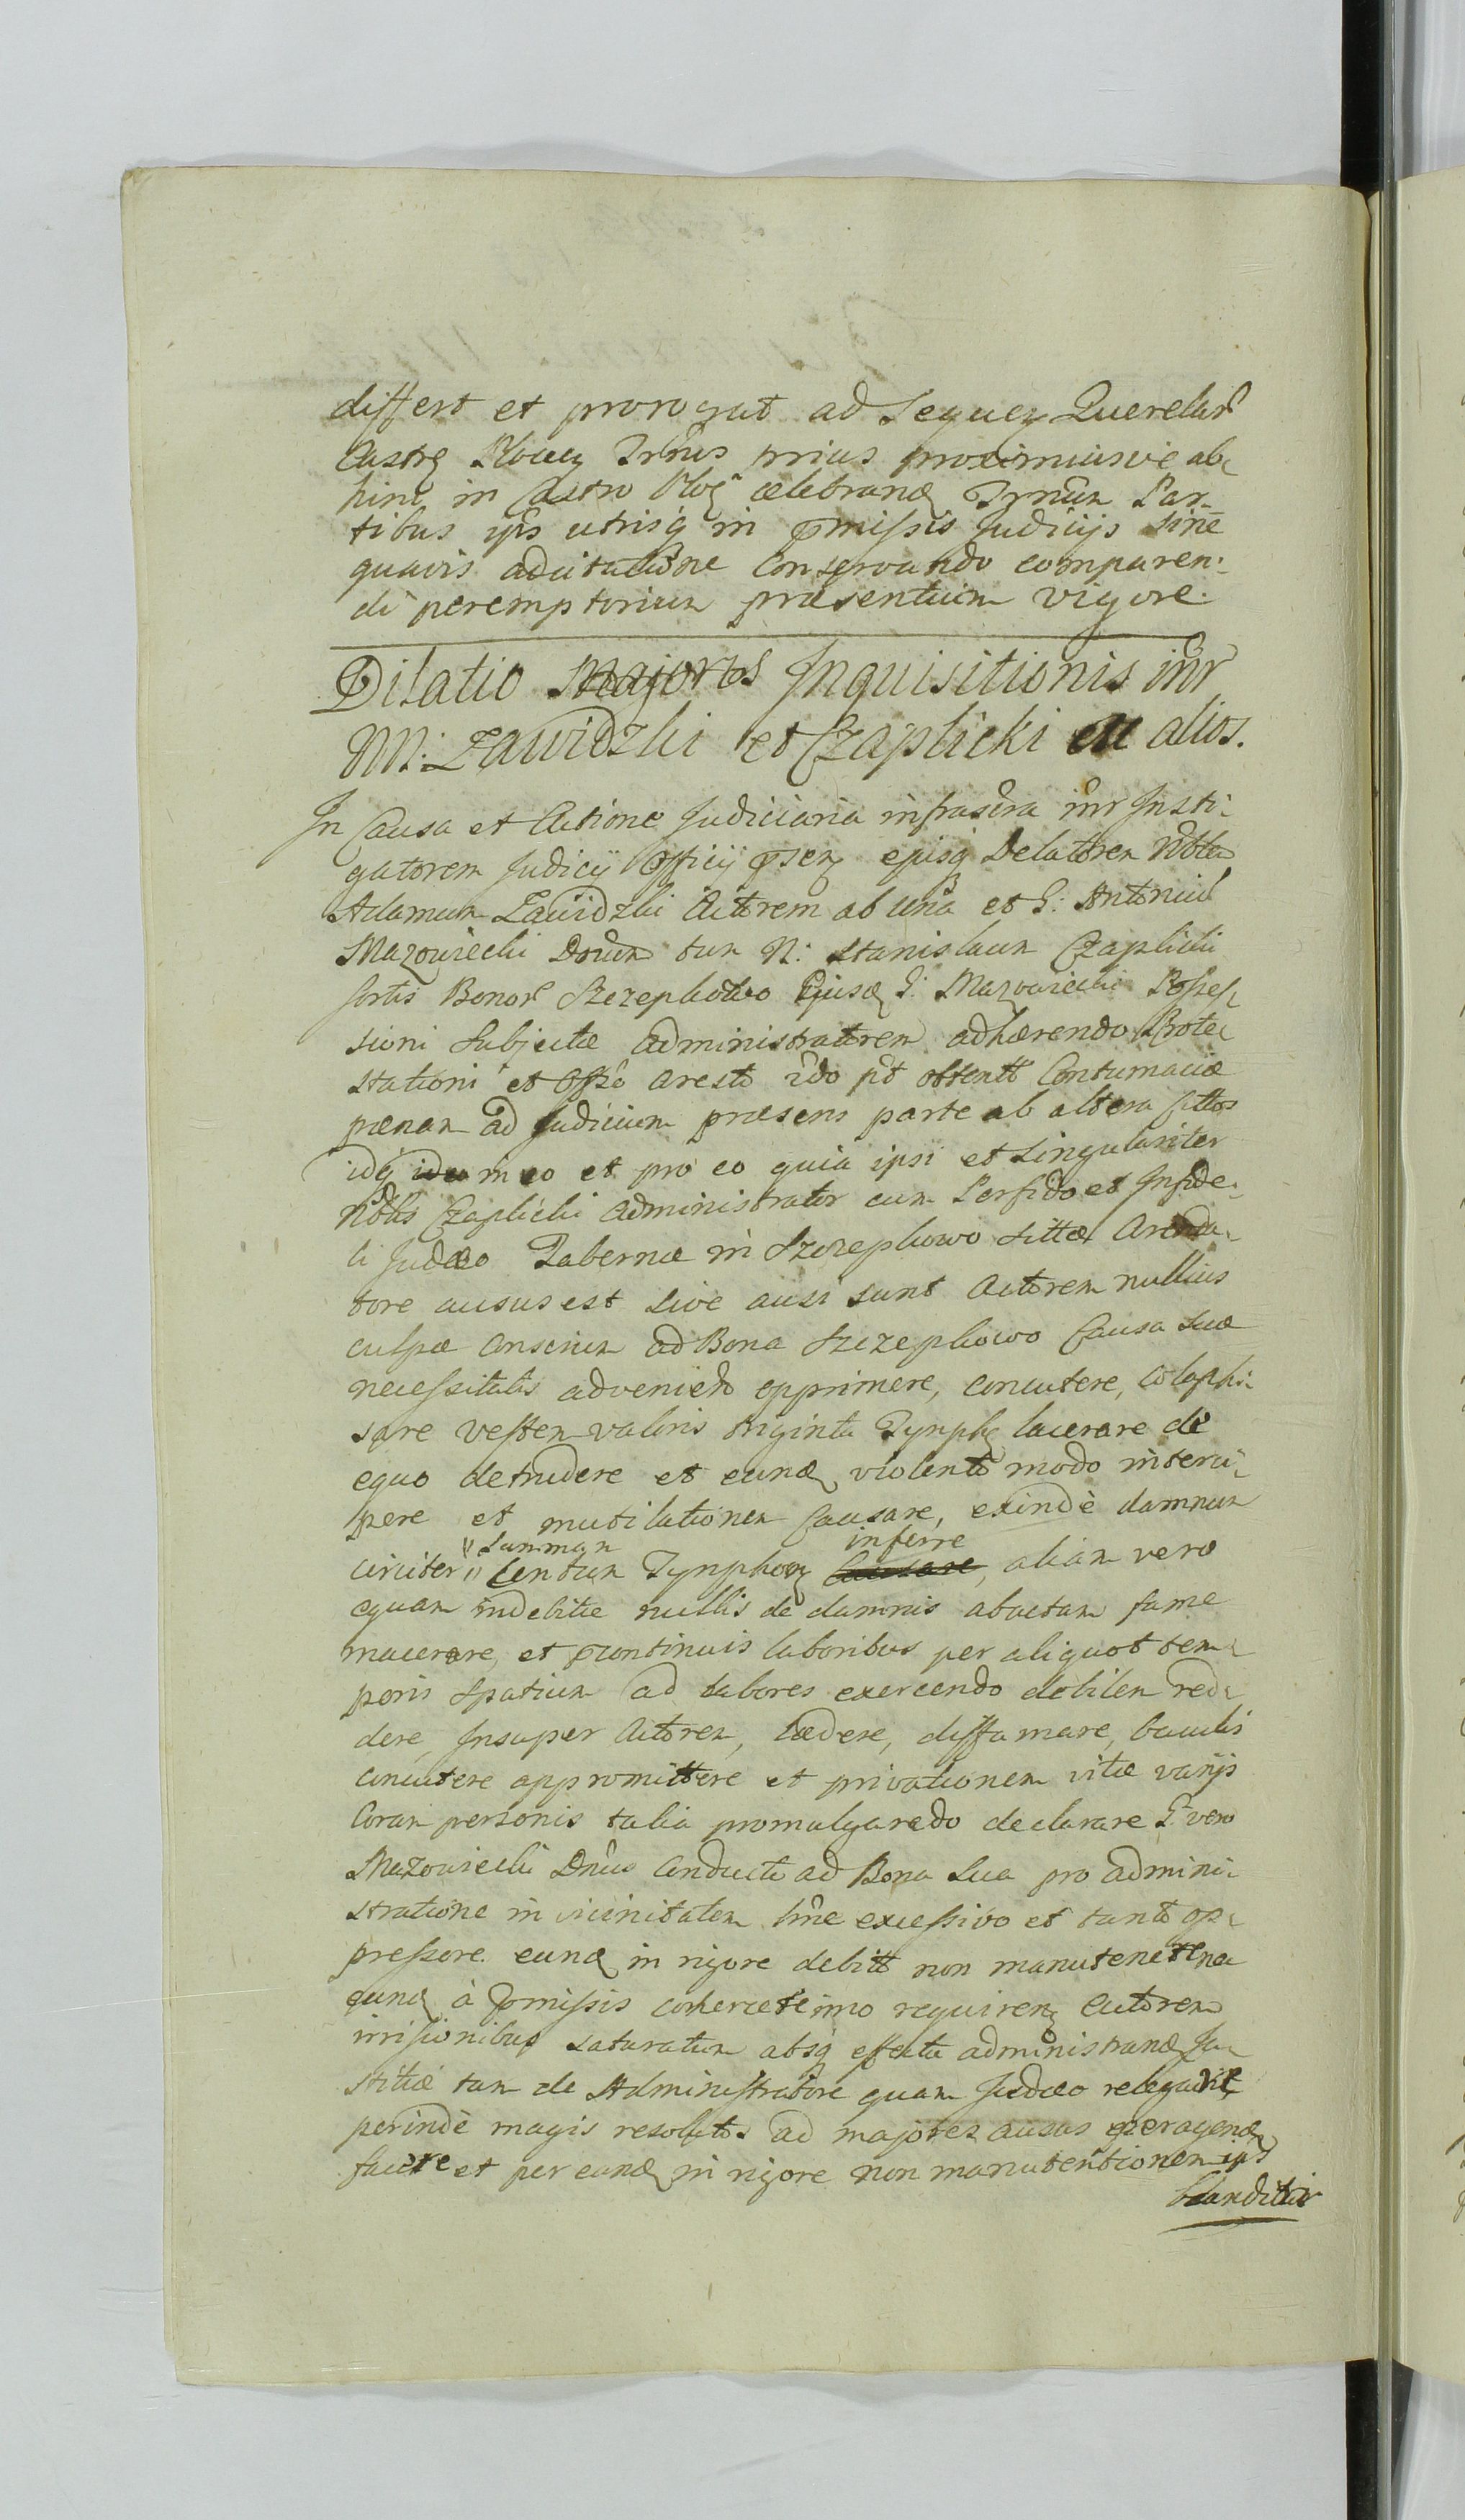 differt et prorogat ad Sequen Querelar
Castren Plocen Trnos prius proximiusve ab
hinc in Castro Ploc celebrand Trnum Par-
tibus ipis utrisq in pmissis Judicijs sine
quavis adcitatione conservando comparen-
di peremptorium praesentium vigore.
Dilatio Majoris Inquisitionis intr
NN: Zawidzki et Czaplicki ac alios.
In Causa et Actione Judiciaria infrascra intr Insti-
gatorem Judicij Officij psen ejusq Delatorem Noblem
Adamum Zawidzki Actorem ab una et G: Antonium
Mazowiecki Dnum tum N: Stanislaum Czaplicki
sortis Bonor Szczepkowo Ejusd G: Mazowiecki Posses-
sioni Subjectae administratorem adhaerendo Prote-
stationi et Offo aresto ido pt obtentae Contumaciae
paenam ad Judicium praesens parte ab altera cittos
idq in eo et pro eo quia ipsi et singulariter
Nobls Czaplicki administrator cum Perfido et Infide-
li Judaeo Tabernae in Szczepkowo sittae Arenda-
tore ausus est sive ausi sunt Actorem nullius
culpae conscium ad Bona Szczepkowo Causa suae
necessitatis adveniendo opprimere, concutere, colaphi-
sare vestem valoris triginta Tymph lacerare de
equo detrudere et eund violento modo interci-
pere et mutilationem Causare, exindè damnum
circiter "summam" Centum Tymphor Causare inferre, aliam vero
equam indebitae nullis de damnis abactam fame
macerare, et continuis laboribus per aliquot tem-
poris spatium ad labores exercendo debilem red-
dere, Insuper Actorem, laedere, diffamare, baculis
concutere appromittere et privationem vitae varijs
Coram personis talia promulgarendo declarare G vero
Mazowiecki Dnus conducto ad Bona Sua pro admini-
stratione in vicinitatem hne excessivo et tanto op-
pressore eund in rigore debito non manutenet nec
eund à pmissis cohercet imo requiren Actorem
irrisionibus saturatum absq effectu administrand Ju-
stitiae tam de Administratore quam Judaeo relegavit
perindè magis resolutos ad majores ausus peragend
facere et per eund in rigore non manutentionem ips
blanditur